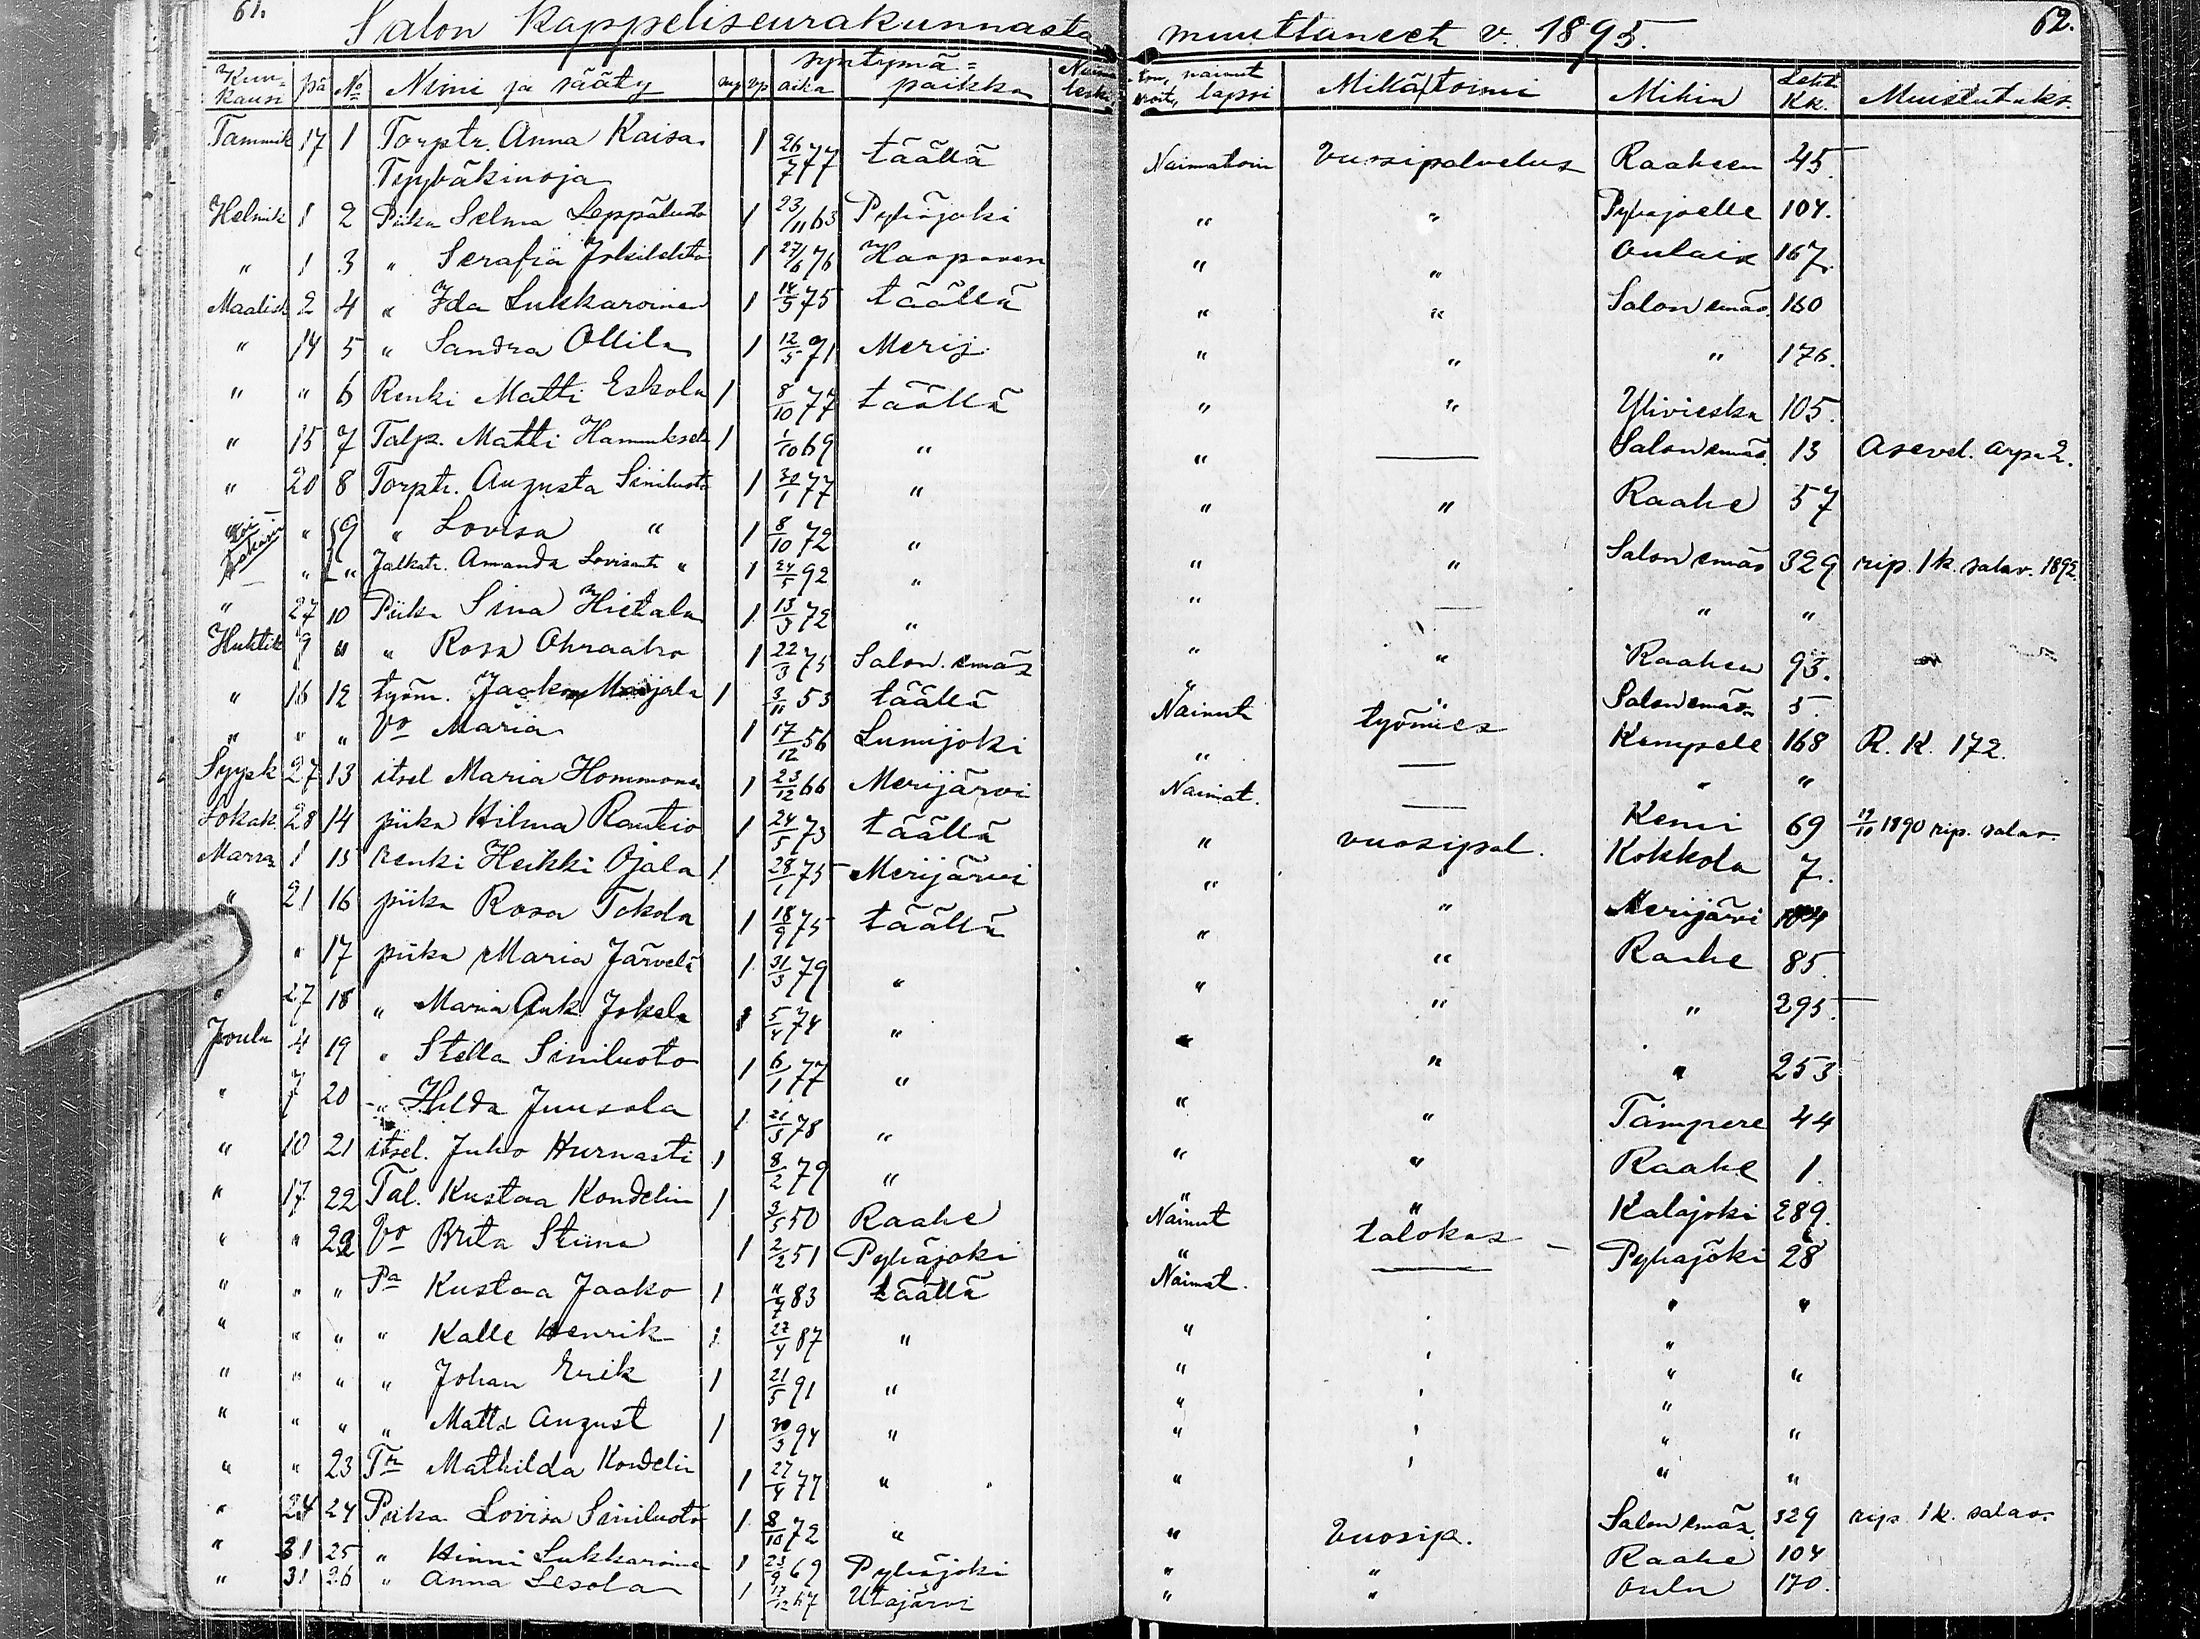 61.
Salon Kappeliseurakunnasta muuttaneet v. 1895.
62.
Kuu- kausi pä No Nimi ja sääty mp vp syntymä= aika paikka naimat. lapsi Mikä toimi Mihin Lehti Kk. Muistutuks.
Tammik 17 1 Torptr. Anna Kaisa 1 26/7 77 täällä Naimatoin Vuosipalvelus Raaheen 45.
Tyybäkinoja
Helmik 1 2 Piika Selma Leppäluoto 1 23/11 63 Pyhäjoki " " Pyhäjoelle 104.
" 1 3 " Serafia 1 27/6 76 Haapaves " " Oulais 167.
Maalisk 2 4 " Ida Lukkaroinen 1 14/5 75 täällä " " Salon emäs. 160
" 14 5 " Sandra Ollila 1 12/5 71 Merij. " " " 176.
" " 6 Renki Matti Eskola 1 8/10 77 täällä " " Ylivieska 105.
" 15 7 Talp. Matti 1 1/10 69 " " — Salon emäs. 13 Asevel. arp. 2.
" 20 8 Torptr. Augusta Siniluoto 1 30/1 77 " " " Raahe 57
" 9 " Lovisa " 1 8/10 72 " " " Salon emäs 329 rip. 1 k. salav. 1892
" " Jalkatr. Amanda " 1 24/5 92 " " — " "
" 27 10 Piika Sina Hietala 1 13/3 72 " " " Raahen 93.
Huhtik 9 " " Rosa Ohraaho 1 22/3 75 Salon. emäs " " Salon emäs. 5.
" 16 12 työm. Jaako Marjala 1 3/11 53 täällä Nainut työmies Kempele 168 R. K. 172.
" " " Vo Maria 1 17/12 56 Lumijoki " — " "
Syysk 27 13 itsel Maria Hommonen 1 23/12 66 Merijärvi Naimat. — Kemi 69 19/10 1890 rip. salav.
Lokak. 28 14 piika Hilma Rautio 1 24/5 73 täällä " vuosipal. Kokkola 7.
Marra 1 15 renki Heikki Ojala 1 28/1 75 Merijärvi " " Merijärvi 104
" 21 16 piika Rosa Tokola 1 18/9 75 täällä " " Raahe 85.
" 17 piika Maria Järvelä 1 31/3 79 " " " " 295.
" 27 18 " Maria Jokela 1 5/4 74 " " " " 253
Joulu 4 19 " Stella Siniluoto 1 6/1 77 " " " Tampere 44
" 7 20 " Hilda Juusola 1 21/3 78 " " " Raahe 1.
" 10 21 itsel. Juho Hurnasti 1 8/2 79 " " " Kalajoki 289.
" 17 22 Tal. Kustaa Kondelin 1 3/5 50 Raahe Nainut talokas Pyhäjoki 28
" " 22 Vo Brita Stiina 1 2/2 51 Pyhäjoki " — " "
" " " Pa Kustaa Jaako 1 83 täällä Naimat. "
" " " " Kalle Henrik 1 27/4 87 " " " "
" " " " Johan Erik 1 21/5 91 " " "
" " " " Matti August 1 30/3 94 " " " "
" " 23 Tr Mathilda Kondelin 1 27/4 77 " " " "
" 24 24 Piika Lovisa Siniluoto 1 8/10 72 " " Vuosip. Salon emäs. 329 rip. 1 k. salav.
" 31 25 " Hinni Lukkaroinen 1 23/9 69 Pyhäjoki " " Raahe 104
" 31 26 " Anna Lesola 1 17/12 67 Utajärvi " " Oulu 170.